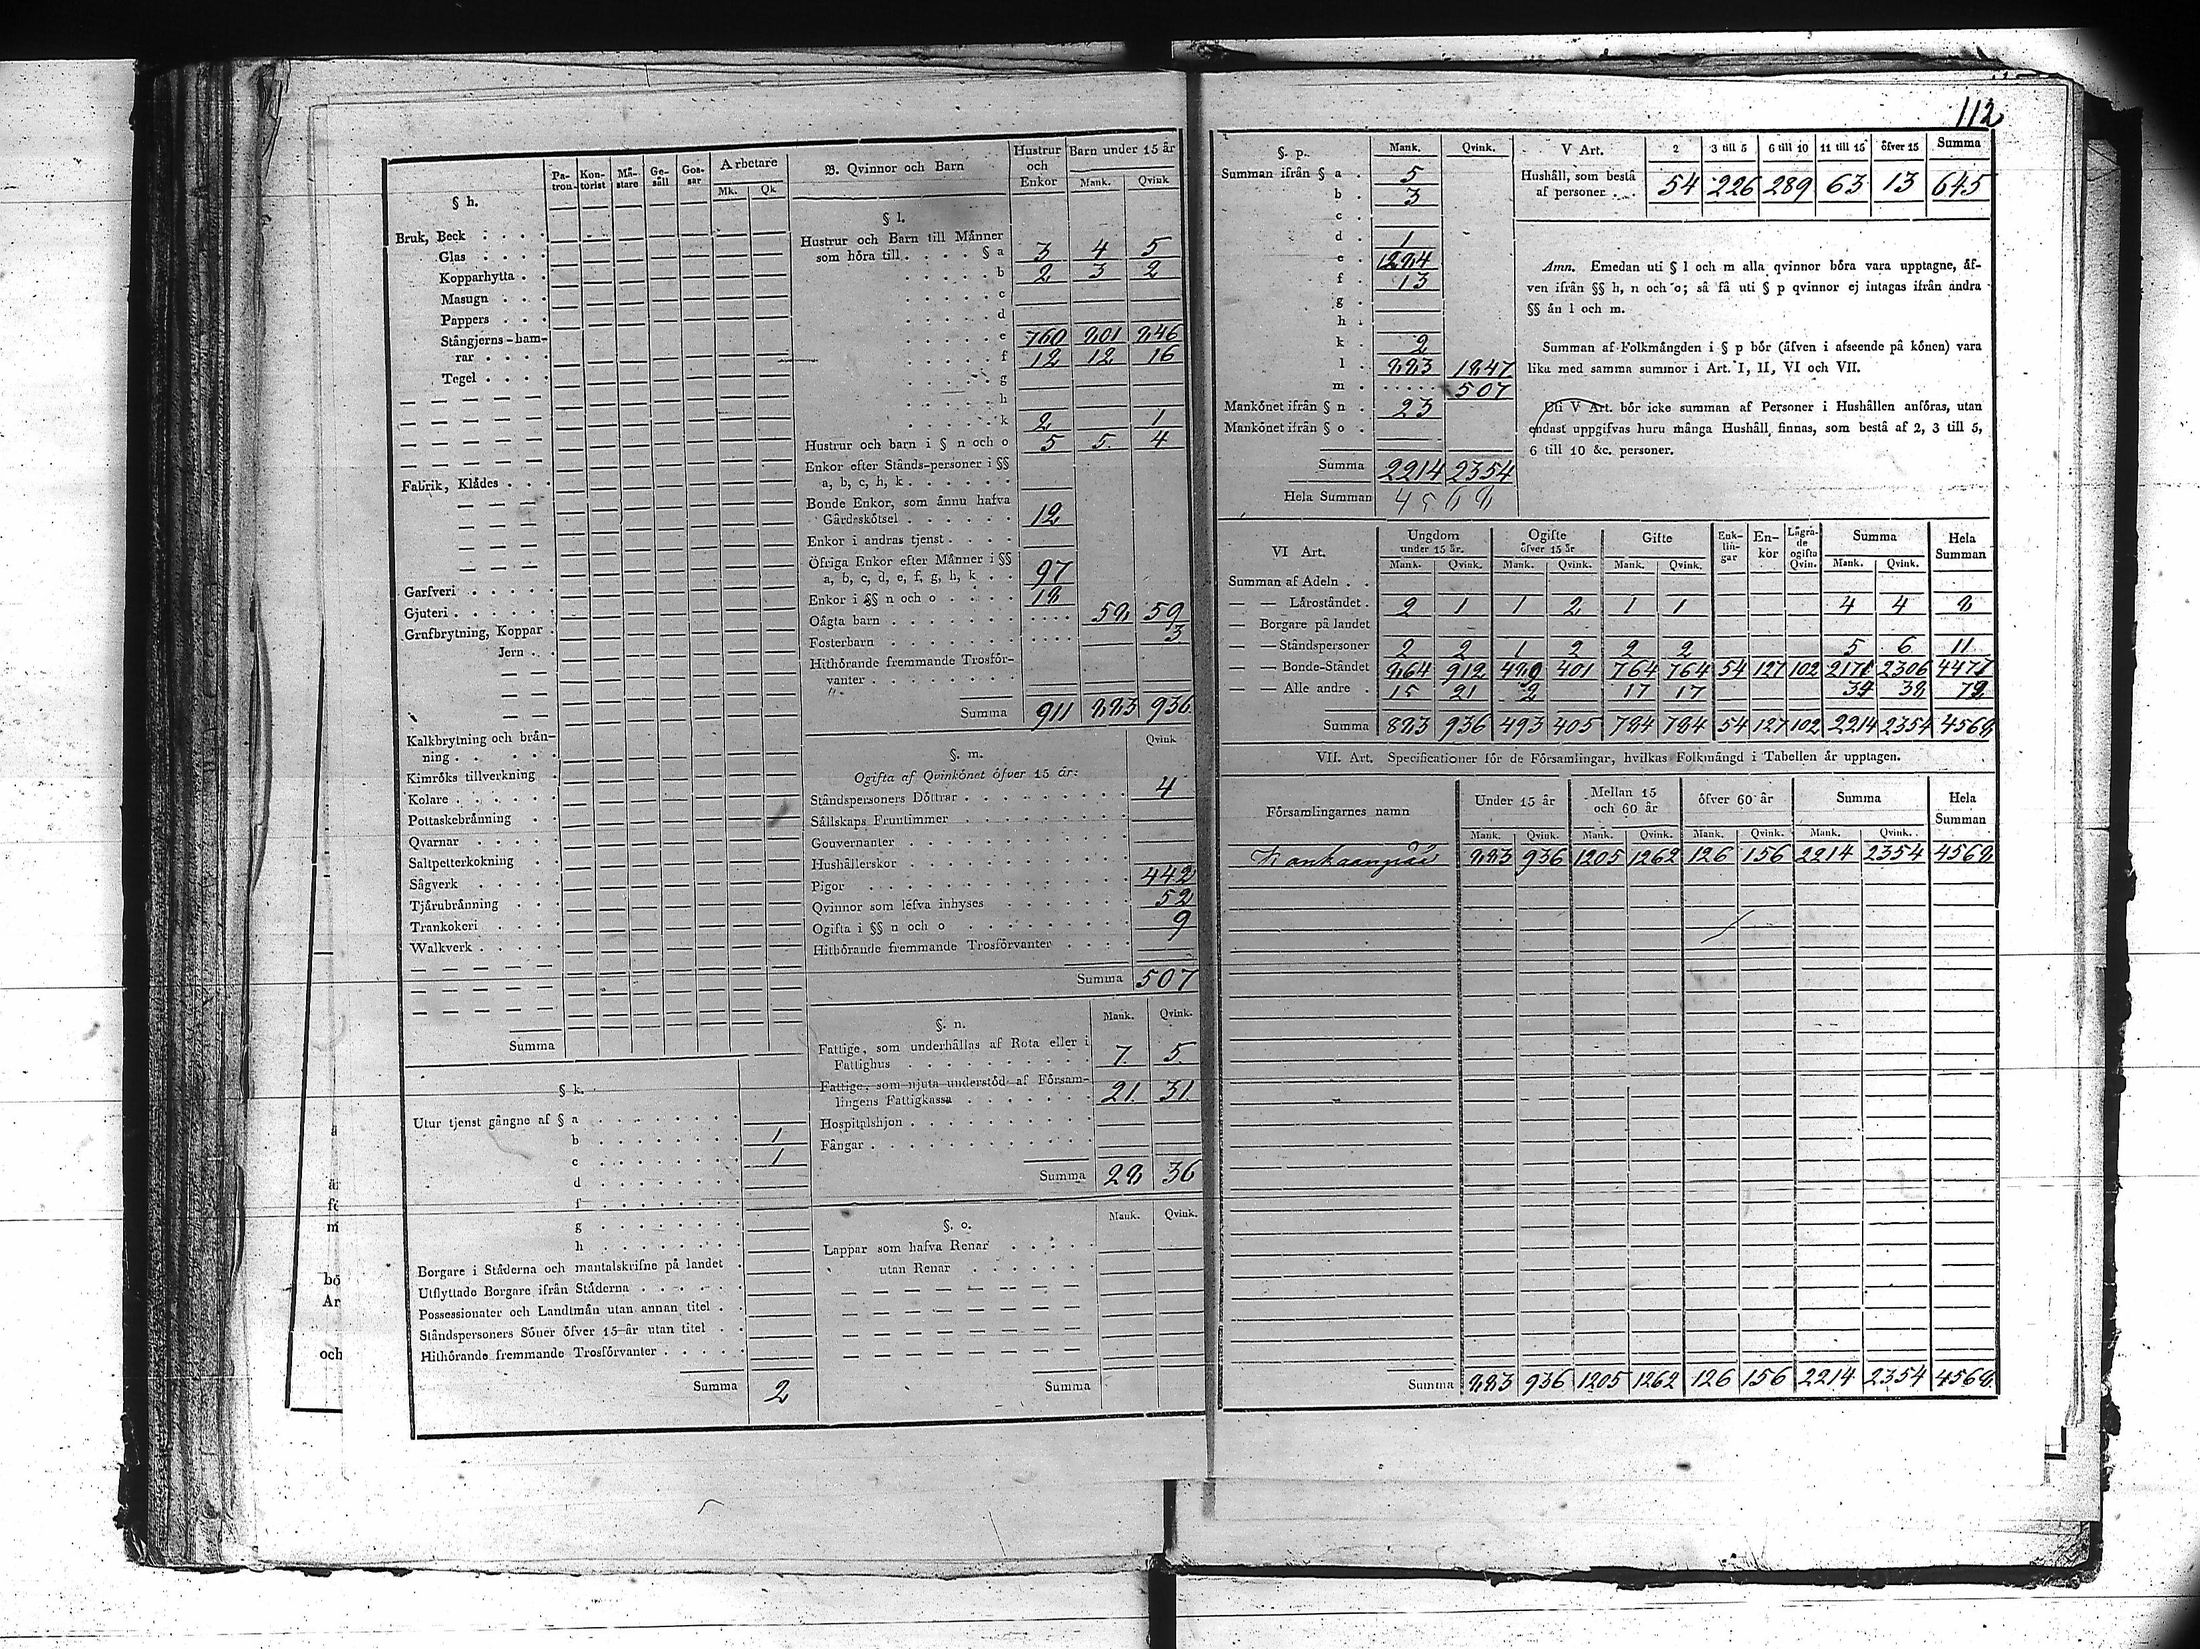 112
§ h.
Patron Kontorist Måstare Gesåll Gossar Arbetare
Mk. Qk
Bruk, Beck
Glas
Kopparhytta
Masugn
Pappers
Stångjerns-ham-
rar
Tegel
Fabrik, Klådes
Garfveri
Gjuteri
Grufbrytning, Koppar
Jern
Kalkbrytning och brån-
ning
Kimróks tillverkning
Kolare
Pottaskebrånning
Qvarnar
Saltpetterkokning
Sågverk
Tjårubrånning
Trankokeri
Walkverk
Summa
§ k.
Utur tjenst gångne af § a
b 1
c 1
d
f
g
h
Borgare i Ståderna och mantalskrifne på landet
Utflyttade Borgare ifrån Ståderna
Possessionater och Landtmån utan annan titel
Ståndspersoners Sóner ófver 15 år utan titel
Hithórande fremmande Trosfórvanter
Summa 2
B. Qvinnor och Barn
Hustrur och Enkor Barn under 15 år
Mank. Qvink
§ l.
Hustrur och Barn till Månner
som hóra till § a 3 4 5
b 2 3 2
c
d
e 760 801 846
f 12 12 16
g
h
k 2 1
Hustrur och barn i § n och o 5 5. 4
Enkor efter Stånds-personer i §§
a, b, c, h, k
Bonde Enkor, som ånnu hafva
Gårdsskótsel 12
Enkor i andras tjenst
Öfriga Enkor efter Månner i §§
a, b, c, d, e, f, g, h, k 97
Enkor i §§ n och o 18
Oågta barn 58 59
Fosterbarn 3
Hithórande fremmande Trosfór-
vanter
Summa 911 883 936
§. m. Qvink
Ogifta af Qvinkónet ófver 15 år:
Ståndspersoners Dóttrar 4
Sållskaps Fruntimmer
Gouvernanter
Hushållerskor
Pigor 442
Qvinnor som lefva inhyses 52
Ogifta i §§ n och o 9
Hithórande fremmande Trosfórvanter
Summa 507
§. n. Mank. Qvink.
Fattige, som underhållas af Rota eller i
Fattighus 7. 5.
Fattige, som njuta understód af Fórsam-
lingens Fattigkassa 21. 31
Hospitalshjon
Fångar
Summa 28 36
§. o. Mank. Qvink.
Lappar som hafva Renar
utan Renar
Summa
§. p. Mank. Qvink.
Summan ifrån § a 5
b 3
c
d 1
e 1284
f 13
g
h
k 2
l 883 1847
m 507
Mankónet ifrån § n 23
Mankónet ifrån § o
Summa 2214 2354
Hela Summan 4568
V Art. 2 3 till 5 6 till 10 11 till 15 ófver 15 Summa
Hushåll, som bestå
af personer 54 226 289 63 13 645
Amn. Emedan uti § l och m alla qvinnor bóra vara upptagne, åf-
ven ifrån §§ h, n och o; så få uti § p qvinnor ej intagas ifrån andra
§§ ån l och m.
Summan af Folkmångden i § p bór (åfven i afseende på kónen) vara
lika med samma summor i Art. I, II, VI och VII.
Uti V Art. bór icke summan af Personer i Hushållen anfóras, utan
endast uppgifvas huru många Hushåll finnas, som bestå af 2, 3 till 5,
6 till 10 &c. personer.
VI Art. Ungdom under 15 år. Ogifte ófver 15 år Gifte Enklingar Enkor Lågrade ogifta Qvin. Summa Hela Summan
Mank. Qvink. Mank. Qvink. Mank. Qvink. Mank. Qvink.
Summan af Adeln
— — Låroståndet 2 1 1 2 1 1 4 4 8
— Borgare på landet
— — Ståndspersoner 2 2 1 2 2 2 5 6 11
— — Bonde-Ståndet 864 912 489 401 764 764 54 127 102 2171 2306 4477
— — Alle andre 15 21 2 17 17 34 38 72
Summa 883 936 493 405 784 784 54 127 102 2214 2354 4568
VII. Art. Specificationer fór de Fórsamlingar, hvilkas Folkmångd i Tabellen år upptagen.
Fórsamlingarnes namn Under 15 år Mellan 15 och 60 år ófver 60 år Summa Hela Summan
Mank. Qvink. Mank. Qvink. Mank. Qvink. Mank. Qvink.
Kankaanpää 883 936 1205 1262 126 156 2214 2354 4568
Summa 883 936 1205 1262 126 156 2214 2354 4568